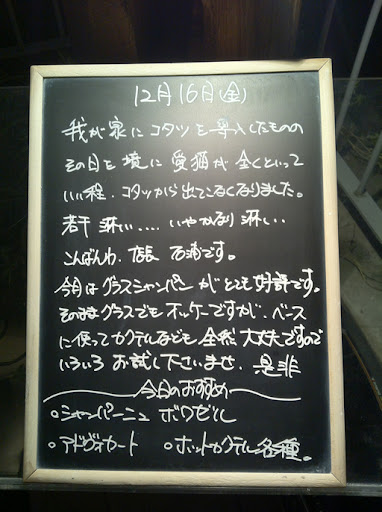 12月16日(金)
我が家にコタツを導入したものの
その日を境に愛猫が全くといって
いい程、コタツから出てこなくなりました。
若干淋しい.....いやかなり淋しい
こんばんわ、店長 石浦です。
今月はグラスシャンパンがとても好評です。
そのままグラスでもオッケーですが、ベース
に使ってカクテルなども全然大丈夫ですので
いろいろお試し下さいませ、是非
今日のおすすめ
○シャンパーニュ ボワゼル
○アドヴォカート ○ホットカクテル各種。